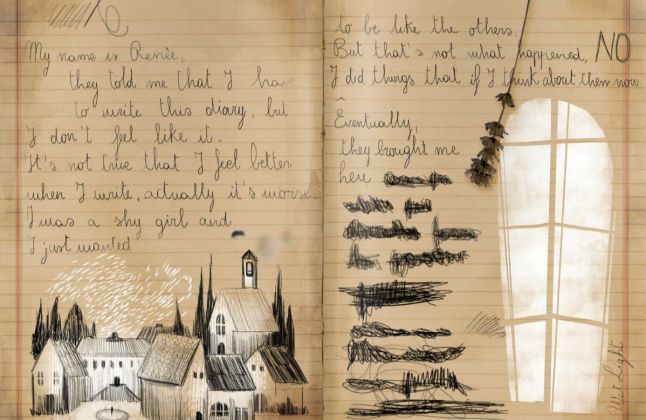 My name is Renèe,
they told me that I have
to write this diary, but
I don't feel like it.
It's not true that I feel better
when I write, actually it's worse.
I was a shy girl and
I just wanted
to be like the others.
But that's not what happened, NO
I did things that if I think about them now
Eventually,
they brought me
here